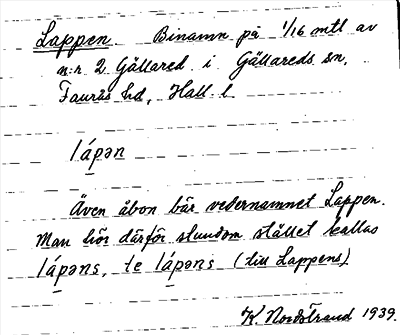 Lappen. Binamn på 1/16 mtl av
n:r 2 Gällared i Gällareds sn,
Faurås hd, Hall. l.
lápən
Även åbon bär vedernamnet Lappen.
Man hör därför stundom stället kallas
lápəns, te lápəns (till Lappens)
K. Nordstrand 1939.